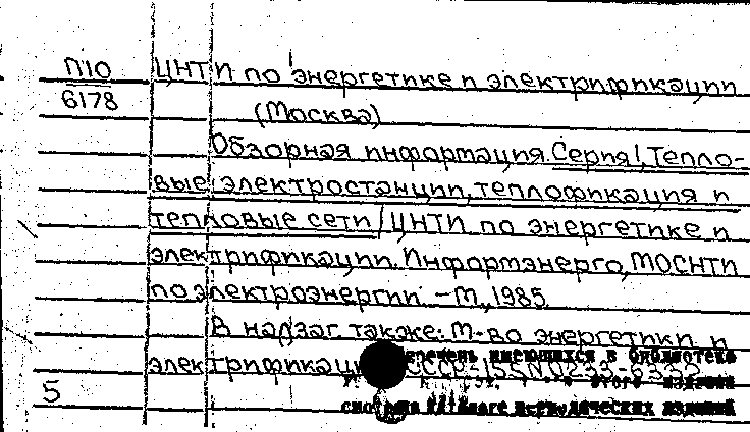 П10 ЦНТИ по энергетике и электрификации
6178 (Москва)
Обзорная информация. Серия 1, Тепло-
вые электростанции, теплофикация и
тепловые сети / ЦНТИ по энергетике и
электрификации. Информэнерго, МОСНТИ
по электроэнергии. – М., 1985
В надзаг. также: М-во энергетики и
электрификации СССР.-ISSN 0233-6332
перечень имеющихся в библиотеке
издания
5 смотрите каталоге периодических изданий